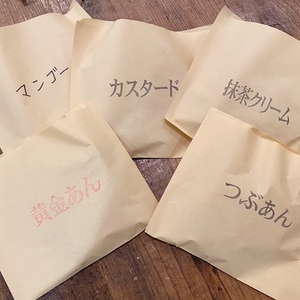 マンゴー
カスタード
抹茶クリーム
黄金あん
つぶあん